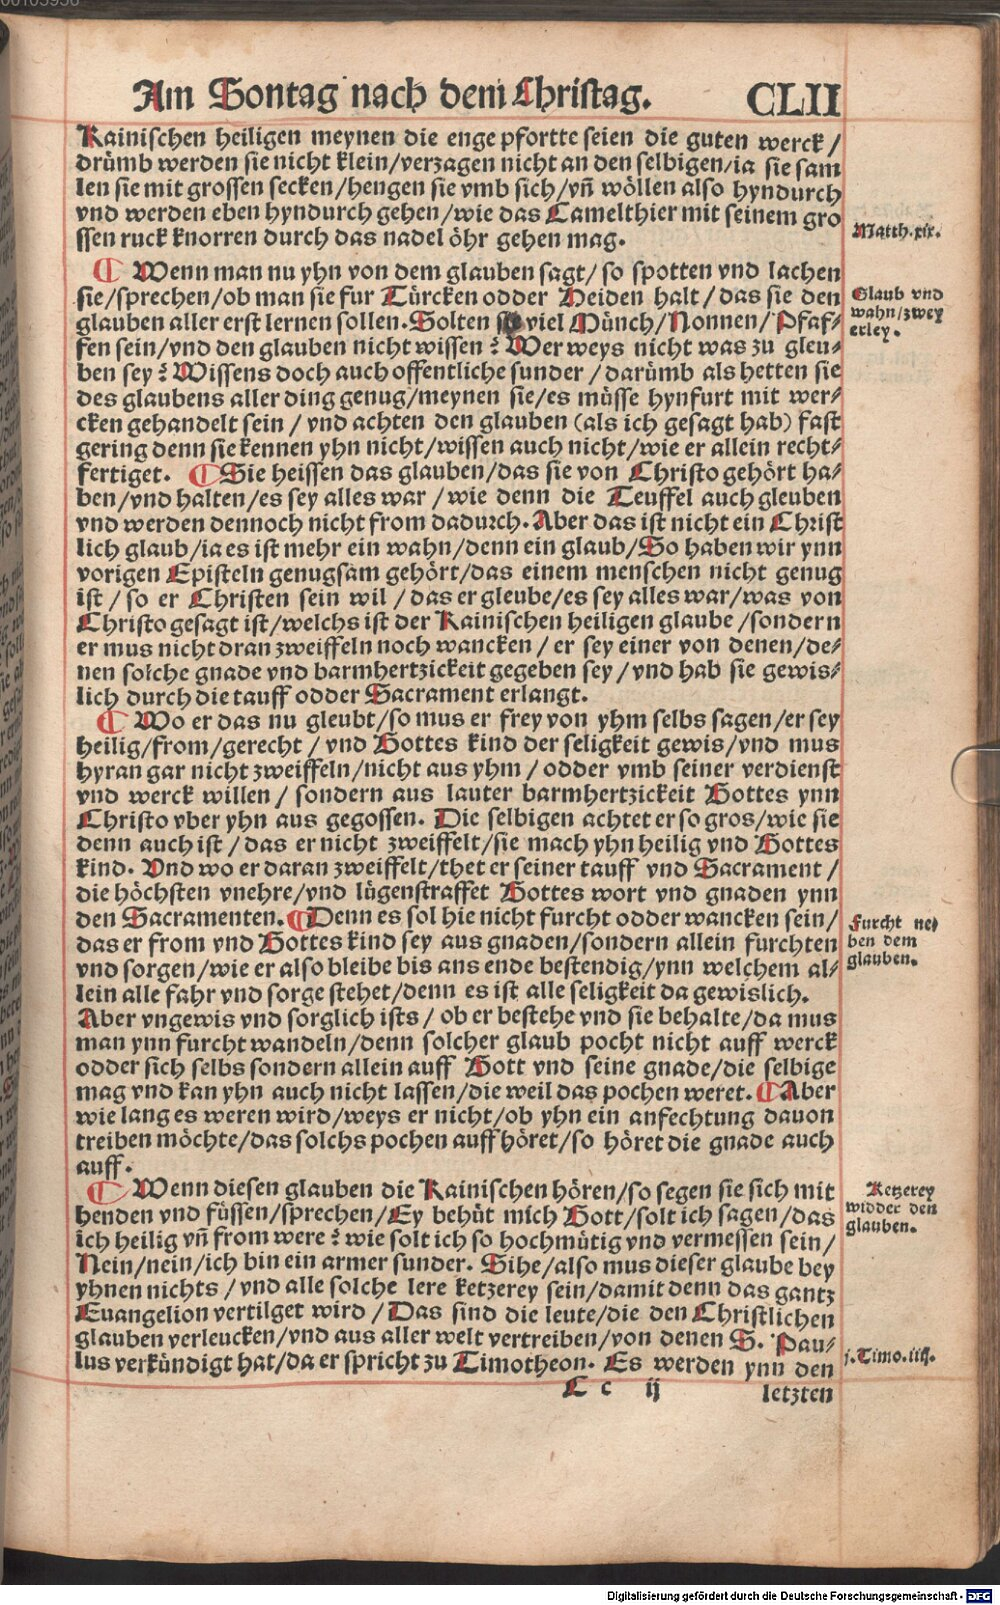 Am Sontag nach dem Christag. CLII
Kainischen heiligen meynen die enge pfortte seien die guten werck /
drümb werden sie nicht klein/verzagen nicht an den selbigen/ia sie sam
len sie mit grossen secken/hengen sie vmb sich/vñ wöllen also hyndurch
vnd werden eben hyndurch gehen/wie das Camelthier mit seinem gro
ssen ruck knorren durch das nadel öhr gehen mag.
Matth.xix.
¶ Wenn man nu yhn von dem glauben sagt/ so spotten vnd lachen
sie/sprechen/ob man sie fur Türcken odder Heiden halt / das sie den
glauben aller erst lernen sollen. Solten so viel Münch/Nonnen/Pfaf⸗
fen sein/vnd den glauben nicht wissen? Wer weys nicht was zu gleu⸗
ben sey? Wissens doch auch offentliche sunder / darümb als hetten sie
des glaubens aller ding genug/meynen sie/es müsse hynfurt mit wer⸗
cken gehandelt sein / vnd achten den glauben (als ich gesagt hab) fast
gering denn sie kennen yhn nicht/wissen auch nicht/wie er allein recht⸗
fertiget. ¶ Sie heissen das glauben/das sie von Christo gehört ha⸗
ben/vnd halten/es sey alles war / wie denn die Teuffel auch gleuben
vnd werden dennoch nicht from dadurch. Aber das ist nicht ein Christ
lich glaub/ia es ist mehr ein wahn/denn ein glaub/So haben wir ynn
vorigen Episteln genugsam gehört/das einem menschen nicht genug
ist / so er Christen sein wil / das er gleube/es sey alles war/was von
Christo gesagt ist/welchs ist der Kainischen heiligen glaube /sondern
er mus nicht dran zweiffeln noch wancken / er sey einer von denen/de⸗
nen solche gnade vnd barmhertzickeit gegeben sey / vnd hab sie gewis⸗
lich durch die tauff odder Sacrament erlangt.
Glaub vnd
wahn/zwey
erley.
¶ Wo er das nu gleubt/so mus er frey von yhm selbs sagen/er sey
heilig/from/gerecht / vnd Gottes kind der seligkeit gewis/vnd mus
hyran gar nicht zweiffeln/nicht aus yhm / odder vmb seiner verdienst
vnd werck willen / sondern aus lauter barmhertzickeit Gottes ynn
Christo vber yhn aus gegossen. Die selbigen achtet er so gros/wie sie
denn auch ist / das er nicht zweiffelt/sie mach yhn heilig vnd Gottes
kind. Vnd wo er daran zweiffelt/thet er seiner tauff vnd Sacrament /
die höchsten vnehre/vnd lügenstraffet Gottes wort vnd gnaden ynn
den Sacramenten. ¶ Denn es sol hie nicht furcht odder wancken sein/
das er from vnd Gottes kind sey aus gnaden/sondern allein furchten
vnd sorgen/wie er also bleibe bis ans ende bestendig/ynn welchem al⸗
lein alle fahr vnd sorge stehet/denn es ist alle seligkeit da gewislich.
Aber vngewis vnd sorglich ists / ob er bestehe vnd sie behalte/da mus
man ynn furcht wandeln/denn solcher glaub pocht nicht auff werck
odder sich selbs sondern allein auff Gott vnd seine gnade/die selbige
mag vnd kan yhn auch nicht lassen/die weil das pochen weret. ¶ Aber
wie lang es weren wird/weys er nicht/ob yhn ein anfechtung dauon
treiben möchte/das solchs pochen auff höret/so höret die gnade auch
auff.
Furcht ne⸗
ben dem
glauben.
¶ Wenn diesen glauben die Kainischen hören/so segen sie sich mit
henden vnd füssen/sprechen/Ey behüt mich Gott/solt ich sagen/das
ich heilig vñ from were? wie solt ich so hochmütig vnd vermessen sein/
Nein/nein/ich bin ein armer sunder. Sihe/also mus dieser glaube bey
yhnen nichts / vnd alle solche lere ketzerey sein/damit denn das gantz
Euangelion vertilget wird / Das sind die leute/die den Christlichen
glauben verleucken/vnd aus aller welt vertreiben/von denen S. Pau⸗
lus verkündigt hat/da er spricht zu Timotheon. Es werden ynn den
Ketzerey
widder den
glauben.
j.Timo.iiij.
C c ij letzten
Digitalisierung gefördert durch die Deutsche Forschungsgemeinschaft - DFG